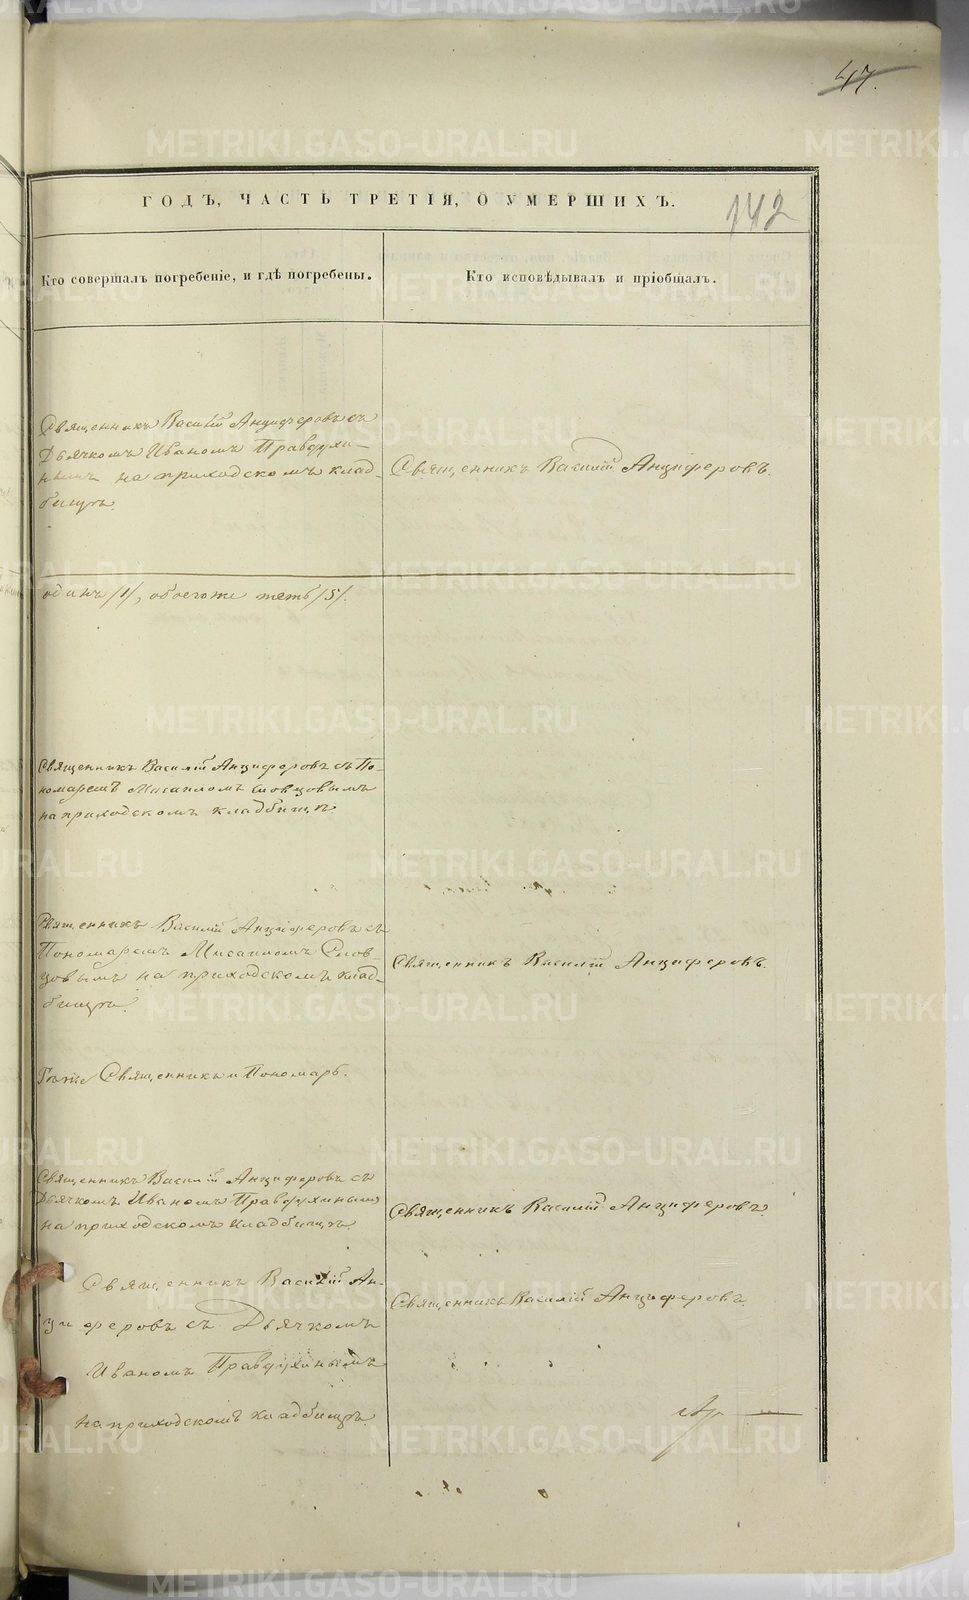 47.
ГОДЪ, ЧАСТЬ ТРЕТІЯ, О УМЕРШИХЪ.
142
Кто совершалъ погребеніе, и гдѣ погребены.
Кто исповѣдывалъ и пріобщалъ.
Священникъ Василій Анциферовъ съ
Дьячкомъ Иваномъ Правдухи-
нымъ на приходскомъ клад-
бищѣ.
Священникъ Василій Анциферовъ.
одинъ /1/, обоегоже пять /5/.
Священникъ Василій Анциферовъ съ По-
номаремъ Мисаиломъ Словцовымъ
на приходскомъ кладбищѣ
Священникъ Василій Анциферовъ съ
Пономаремъ Мисаиломъ Слов-
цовымъ на приходскомъ клад-
бищѣ.
Священникъ Василій Анциферовъ.
Тѣже Священникъ и Пономарь.
Священникъ Василій Анциферовъ съ
Дьячкомъ Иваномъ Правдухинымъ
на приходскомъ кладбищѣ
Священникъ Василій Анциферовъ.
Священникъ Василій Ан-
циферовъ съ Дьячкомъ
Иваномъ Правдухинымъ
на приходскомъ кладбищѣ.
Священникъ Василій Анциферовъ.
METRIKI.GASO-URAL.RU